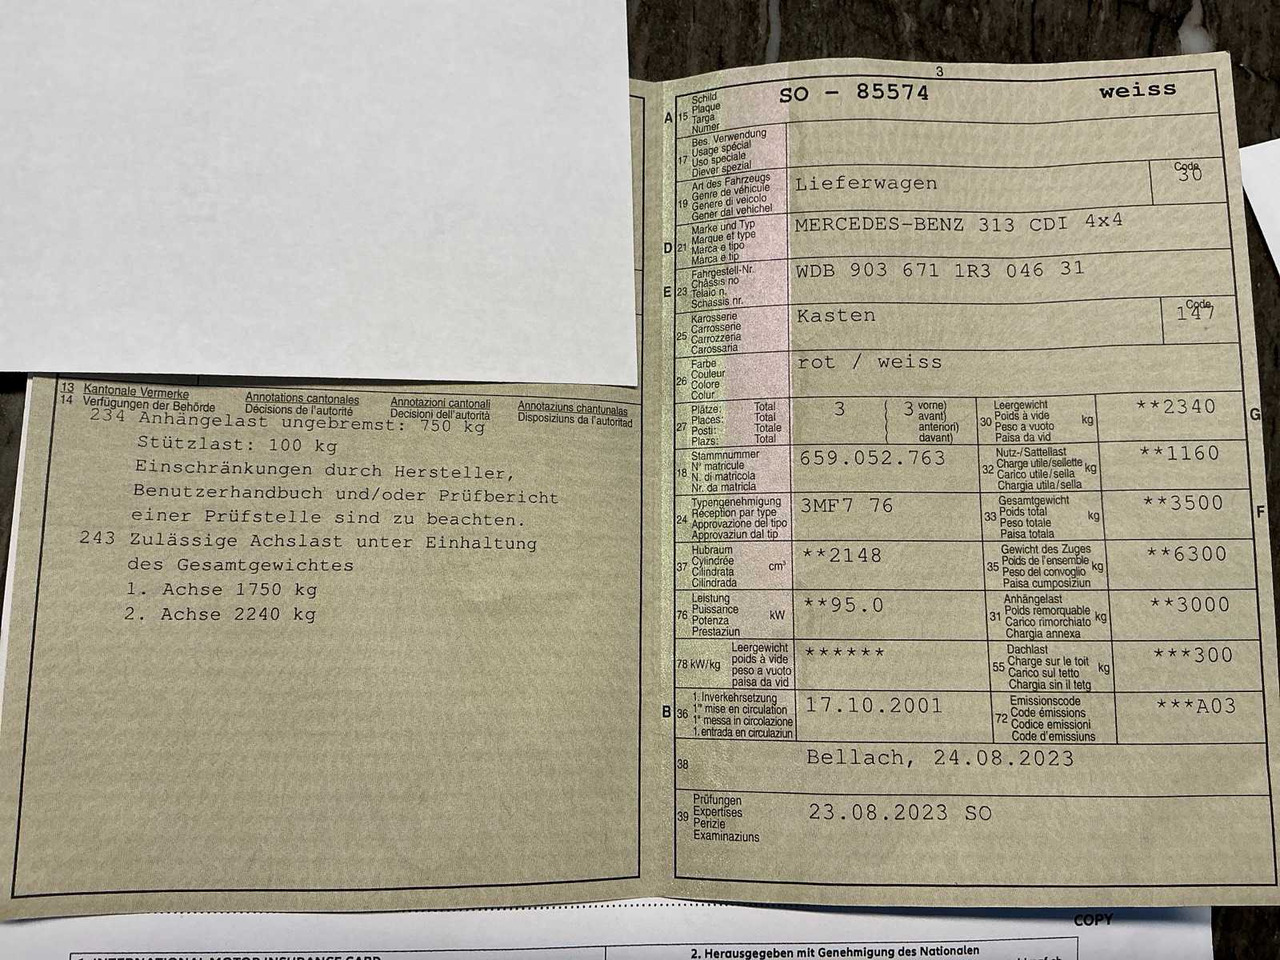 13 Kantonale Vermerke Annotations cantonales Annotazioni cantonali Annotaziuns chantunalas
14 Verfügungen der Behörde Décisions de l'autorité Decisioni dell'autorità Disposiziuns da l'autoritad
234 Anhängelast ungebremst: 750 kg
Stützlast: 100 kg
Einschränkungen durch Hersteller,
Benutzerhandbuch und/oder Prüfbericht
einer Prüfstelle sind zu beachten.
243 Zulässige Achslast unter Einhaltung
des Gesamtgewichtes
1. Achse 1750 kg
2. Achse 2240 kg
3
A 15 Schild
Plaque
Targa
Numer
SO - 85574 weiss
17 Bes. Verwendung
Usage spécial
Uso speciale
Diever spezial
19 Art des Fahrzeugs
Genre de véhicule
Genere di veicolo
Gener dal vehichel
Lieferwagen
Code
30
D 21 Marke und Typ
Marque et type
Marca e tipo
Marca e tip
MERCEDES-BENZ 313 CDI 4x4
E 23 Fahrgestell-Nr.
Châssis no
Telaio n.
Schassis nr.
WDB 903 671 1R3 046 31
25 Karosserie
Carrosserie
Carrozzeria
Carossaria
Kasten
Code
147
26 Farbe
Couleur
Colore
Colur
rot / weiss
27 Plätze: Total
Places: Total
Posti: Totale
Plazs: Total
3 ( 3 vorne)
( avant)
( anteriori)
( davant)
30 Leergewicht
Poids à vide
Peso a vuoto kg
Paisa da vid
**2340
G
18 Stammnummer
N° matricule
N. di matricola
Nr. da matricla
659.052.763
32 Nutz-/Sattellast
Charge utile/sellette kg
Carico utile/sella
Chargia utila/sella
**1160
24 Typengenehmigung
Réception par type
Approvazione del tipo
Approvaziun dal tip
3MF7 76
33 Gesamtgewicht
Poids total
Peso totale kg
Paisa totala
**3500
F
37 Hubraum
Cylindrée
Cilindrata cm³
Cilindrada
**2148
35 Gewicht des Zuges
Poids de l'ensemble
Peso del convoglio kg
Paisa cumposiziun
**6300
76 Leistung
Puissance
Potenza kW
Prestaziun
**95.0
31 Anhängelast
Poids remorquable
Carico rimorchiato kg
Chargia annexa
**3000
78 kW/kg Leergewicht
poids à vide
peso a vuoto
paisa da vid
******
55 Dachlast
Charge sur le toit
Carico sul tetto kg
Chargia sin il tetg
***300
B 36 1. Inverkehrsetzung
1re mise en circulation
1a messa in circolazione
1. entrada en circulaziun
17.10.2001
72 Emissionscode
Code émissions
Codice emissioni
Code d'emissiuns
***A03
38 Bellach, 24.08.2023
39 Prüfungen
Expertises
Perizie
Examinaziuns
23.08.2023 SO
COPY
1. INTERNATIONAL MOTOR INSURANCE CARD
2. Herausgegeben mit Genehmigung des Nationalen